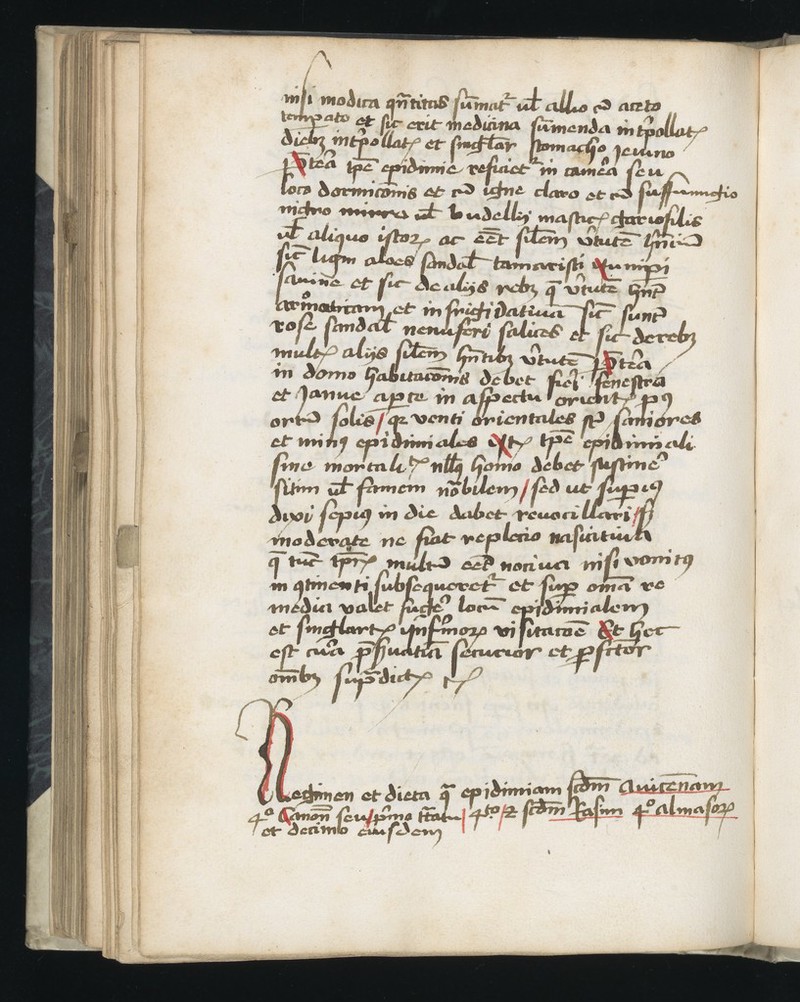 nisi modica qñtitas sumat² ul̄ allio cū aceto
temꝑato et sic erit medicina sumenda int̾pollatꝭ
diebꝫ int̾pollatꝭ et singl̄ar stomacho Jeiuno
P̄t̾ea tꝑe epidimie reficiet² in cam̾a seu
loco dormic̄onis et cū igne claro et cū suffumigio
nigro mirra ul̄ budellij masticꝭ gariofilis
ul̄ aliquo istoꝝ ac eēt sil̄em v̾tutē hn̄tiū
sic̄ lignū aloes sandal̄ tamaristi Junipi
savine et sic de alijs rebꝫ q̄ v̾tutē hn̄t
aromaticam et infrigidatiua sic̄ sunt
rose sandal̄ nenuferi salices et sic de rebꝫ
multꝭ alijs sil̄em hn̄tibꝫ v̾tutē P̄t̾ea
in domo habitac̄onis debet fieri fenestra
et Janue aperte in aspectu orientꝭ pꝰ
ortū solis / qꝛ venti orientales st̄ saniores
et minꝰ epidimiales Itꝫ tꝑe epidimiali
sine mortalitꝭ nllꝰ homo debet sustine̾
sitim ul̄ famem nōbilem / sed ut suꝑiꝰ
dixi sepius in die dabet reuocillari / sꝫ
moderate ne fiat replecio nasicitiua
q̄ tūc tꝑis multū eēt nociua nisi vomitꝰ
in ꝯtinenti subsequeret² et suꝑ oīa re
media valet fuge̾ locū epidimialem
et singlartꝭ infirmoꝝ visitacōe Et hec
est cura p̄seruatiua securior et ꝑfc̄ior
om̄bꝫ sup̄dictꝭ
Regimen et dieta q̄ epidimiam scd̄m Auicennam
4º Canon̄ seu primo tc̄atu / 4to / ꝛ scd̄m Rasim 4º almasoꝝ
et decimo eiusdem